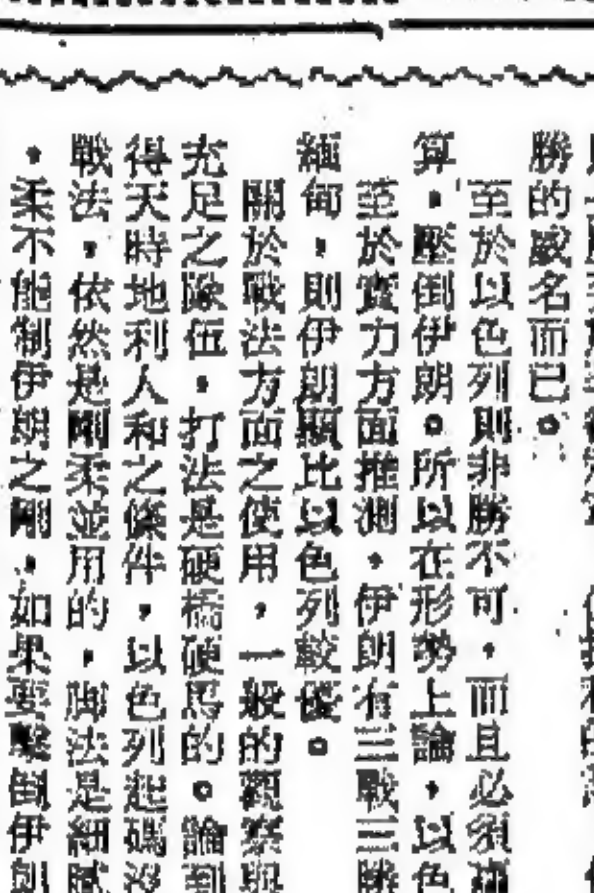 勝的威名而已。
至於以色列則非勝不可，而且必須
算，壓倒伊朗。所以在形勢上論，以色
至於實力方面推測，伊朗有三戰三勝
緬甸，則伊朗顯比以色列較優。
關於戰法方面之使用，一般的觀察與
充足之隊伍，打法是硬橋硬馬的。論到
得天時地利人和之條件，以色列起碼沒
戰法，依然是剛柔並用的，脚法是細膩
，柔不能制伊朗之剛，如果要擊倒伊朗